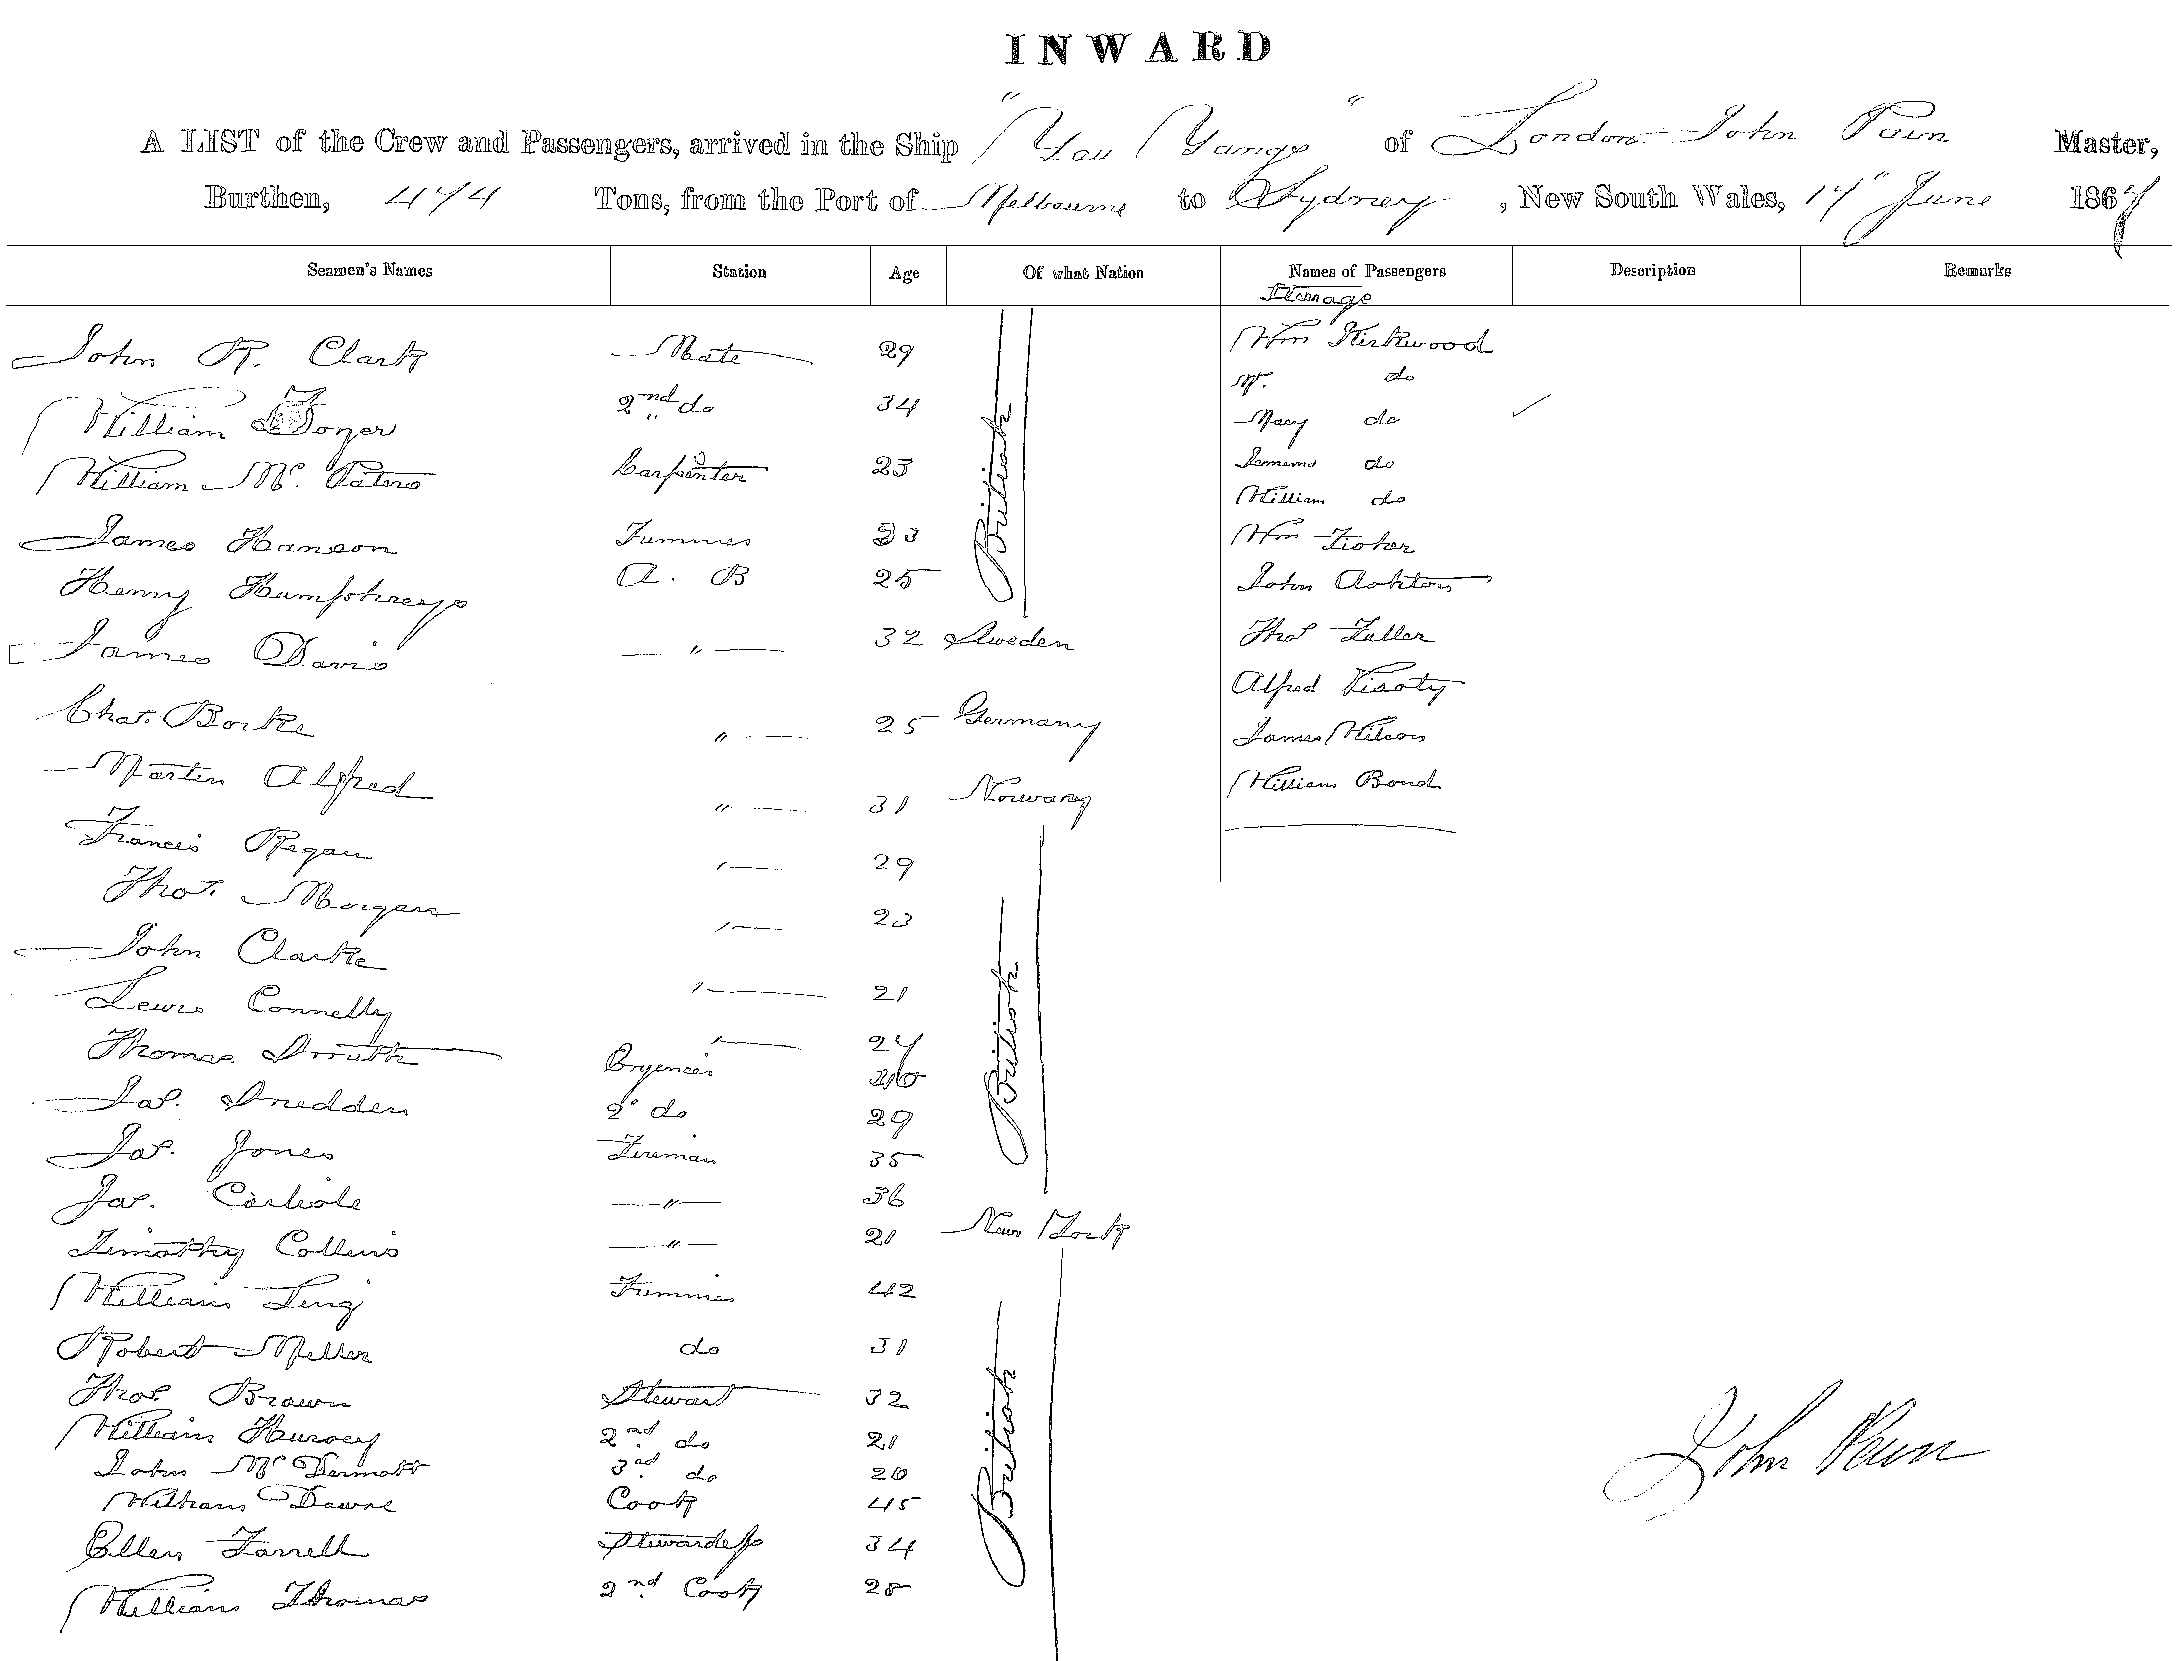 INWARD
A LIST of the Crew and Passengers, arrived in the Ship "You Yangs" of London John Pain Master,
Burthen, 474 Tons, from the Port of Melbourne to Sydney, New South Wales, 17" June 1867
Seamen's Names Station Age Of what Nation Names of Passengers Description Remarks
Steerage
John R. Clark Mate 29 British Wm Kirkwood
William 2nd do 34 Mr. do
Mary do
William Mc. Carpenter 23 do
William do
James Hanson 33 Wm Fisher
Henry Humphreys A. B 25 John Ashton
James Davis " 32 Sweden Thos Fuller
Alfred
Chas. Borke " 25 Germany James Wilson
Martin Alfred " 31 Norway William Bond
Francis Regan " 29 British
Thos. Morgan " 23
John Clarke " 21
Lewis Connelly " 24
Thomas 26
Jas. Snedden 2d do 29
Jas. Jones Fireman 35
Jas. Carlisle " 36
Timothy Collins " 21 New York
William Ling 42 British
Robert Miller do 31
Thos. Brown Steward 32
William Hurvey 2nd do 21
John McDermott 3rd do 20
William Dawne Cook 45
Ellen Farrell Stewardess 34
William Thomas 2nd Cook 28
John Pain